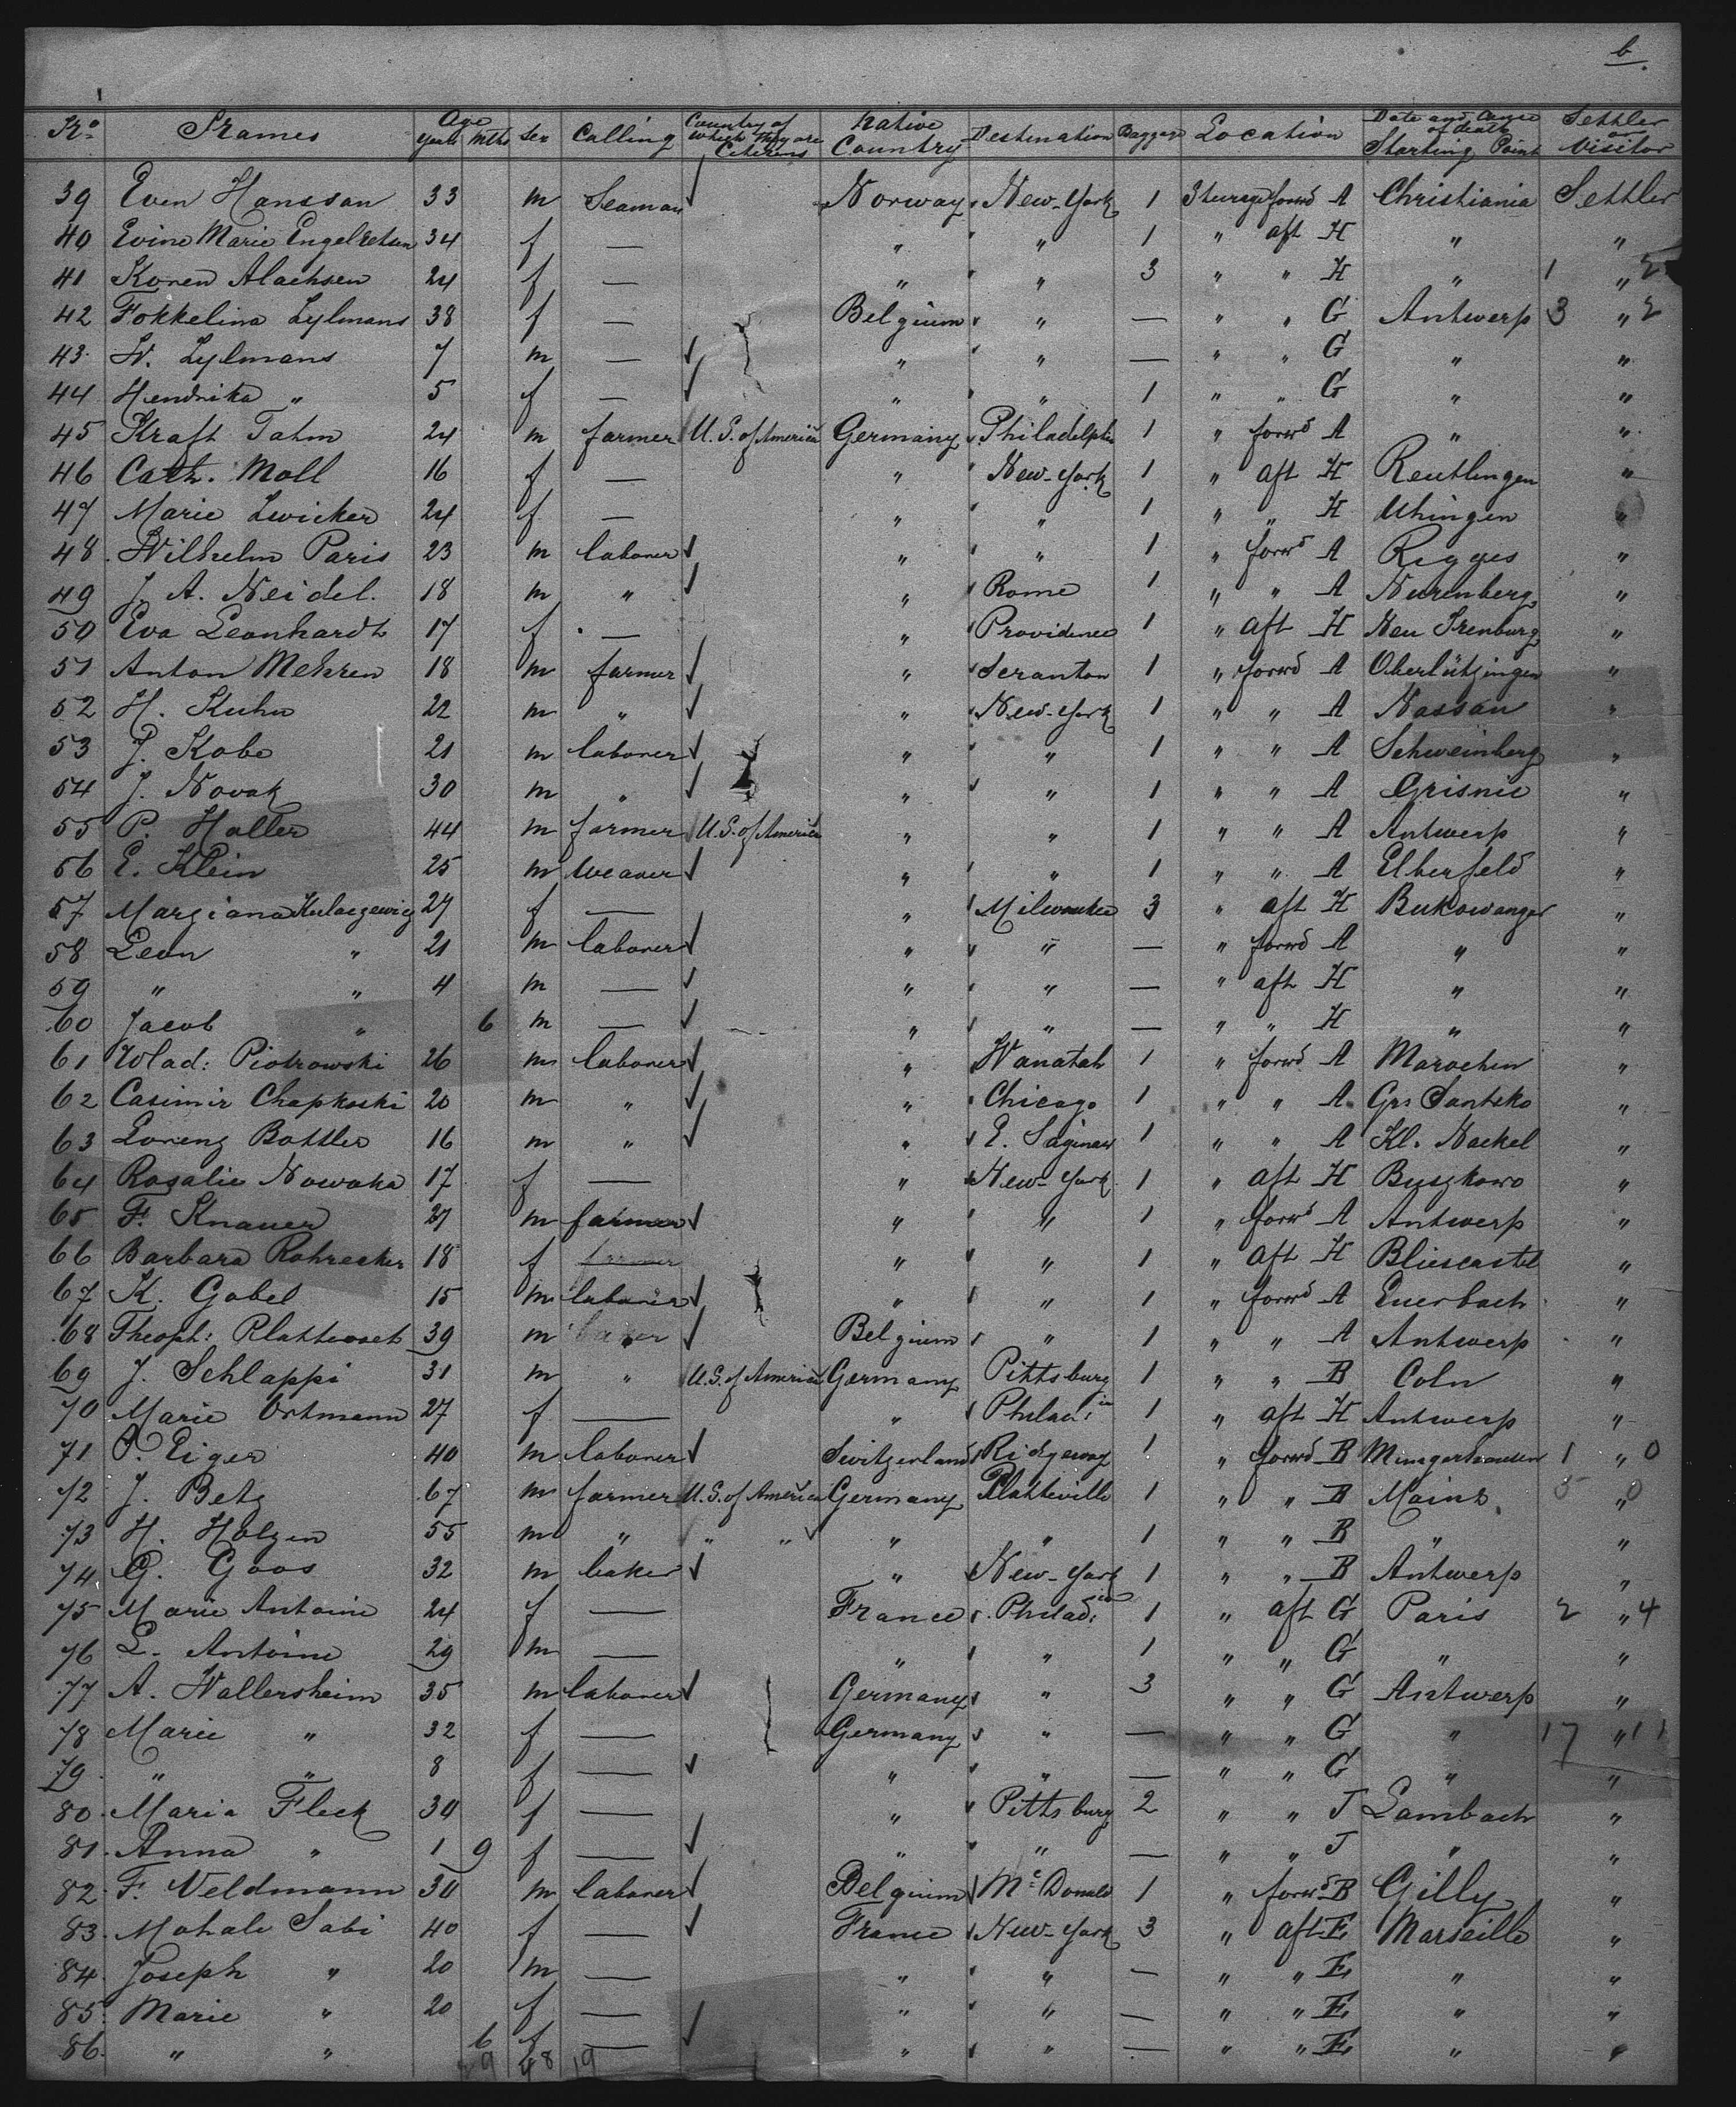 b
No Names Age Years Mths Sex Calling Country of which they are Citizens Native Country Destination Baggage Location Date and Cause of death Starting Point Settler or Visitor
39 Even Hanssan 33 m Seaman Norway New-York 1 Steerage forwd A Christiania Settler
40 Evine Marie 34 f — " " 1 " aft H " "
41 Koren Alachsen 24 f — " " 3 " " H " 1 " 2
42 Fokkelina Lylmans 38 f — Belgium " — " " G Antwerp 3 " 2
43 W. Lylmans 7 m — " " — " " G " "
44 Hendrika " 5 f — " " 1 " " G " "
45 Kraft Tahm 24 m farmer U.S. of America Germany Philadelphia 1 " forwd A " "
46 Cath. Moll 16 f — " New-York 1 " aft H Reutlingen "
47 Marie Zwicker 24 f — " " 1 " " H Uhingen "
48 Wilhelm Paris 23 m laborer " " 1 " forwd A Rigges "
49 J. A. Neidel. 18 m " " Rome 1 " " A Nurenberg "
50 Eva Leonhardt 17 f — " Providence 1 " aft H Neu Isenburg "
51 Anton Mehren 18 m farmer " Scranton 1 " forwd A Oberlützingen "
52 H. Kuhn 22 m " " New-York 1 " " A Nassau "
53 P. Kobe 21 m laborer " " 1 " " A Schweinberg "
54 J. Novak 30 m " " " 1 " " A Grisnic "
55 P. Haller 44 m farmer U.S. of America " " 1 " " A Antwerp "
56 E. Klein 25 m weaver " " 1 " " A Elberfeld "
57 Margiana Kulazewicz 27 f — " Milwaukee 3 " aft H Bukowanger "
58 Leon " 21 m laborer " " — " forwd A " "
59 " " 4 m — " " — " aft H " "
60 Jacob " 6 m — " " — " " H " "
61 Wlad: Piotrowski 26 m laborer " Wanatah 1 " forwd A Marochen "
62 Casimir Chapkoski 20 m " " Chicago 1 " " A Gr. Santsko "
63 Lorenz Bottler 16 m " " E. Saginaw 1 " " A Kl. Nackel "
64 Rosalie Nowaka 17 f — " New-York 1 " aft H Buszkowo "
65 F. Knauer 27 m farmer " " 1 " forwd A Antwerp "
66 Barbara Rohrecker 18 f — " " 1 " aft H Bliescastel "
67 K. Gobel 15 m laborer " " 1 " forwd A Euerbach "
68 Theoph: 39 m " Belgium " 1 " " A Antwerp "
69 J. Schlappi 31 m " U.S. of America Germany Pittsburg 1 " " B Coln "
70 Marie Ortmann 27 f — " Philad:ia 1 " aft H Antwerp "
71 P. Eiger 40 m laborer Switzerland Ridgeway 1 " forwd B 1 " 0
72 J. Betz 67 m farmer U.S. of America Germany Platteville 1 " " B Mainz 5 " 0
73 H. Holzen 55 m " " " " " 1 " " B " "
74 G. Goos 32 m baker " New-York 1 " " B Antwerp "
75 Marie Antoine 24 f — France Philad:ia 1 " aft G Paris 2 " 4
76 L. Antoine 29 m — " " 1 " " G " "
77 A. Wallersheim 35 m laborer Germany " 3 " " G Antwerp "
78 Marie " 32 f — Germany " — " " G " 17 " 11
79 " " 8 f — " " — " " G " "
80 Maria Fleck 30 f — " Pittsburg 2 " " J Lambach "
81 Anna " 1 9 f — " " — " " J " "
82 F. Veldmann 30 m laborer Belgium Mc Donald 1 " forwd B Gilly "
83 Mahale Sabi 40 f — France New-York 3 " aft E Marseille "
84 Joseph " 20 m — " " — " " E " "
85 Marie " 20 f — " " — " " E " "
86 " " 6 f — " " — " " E " "